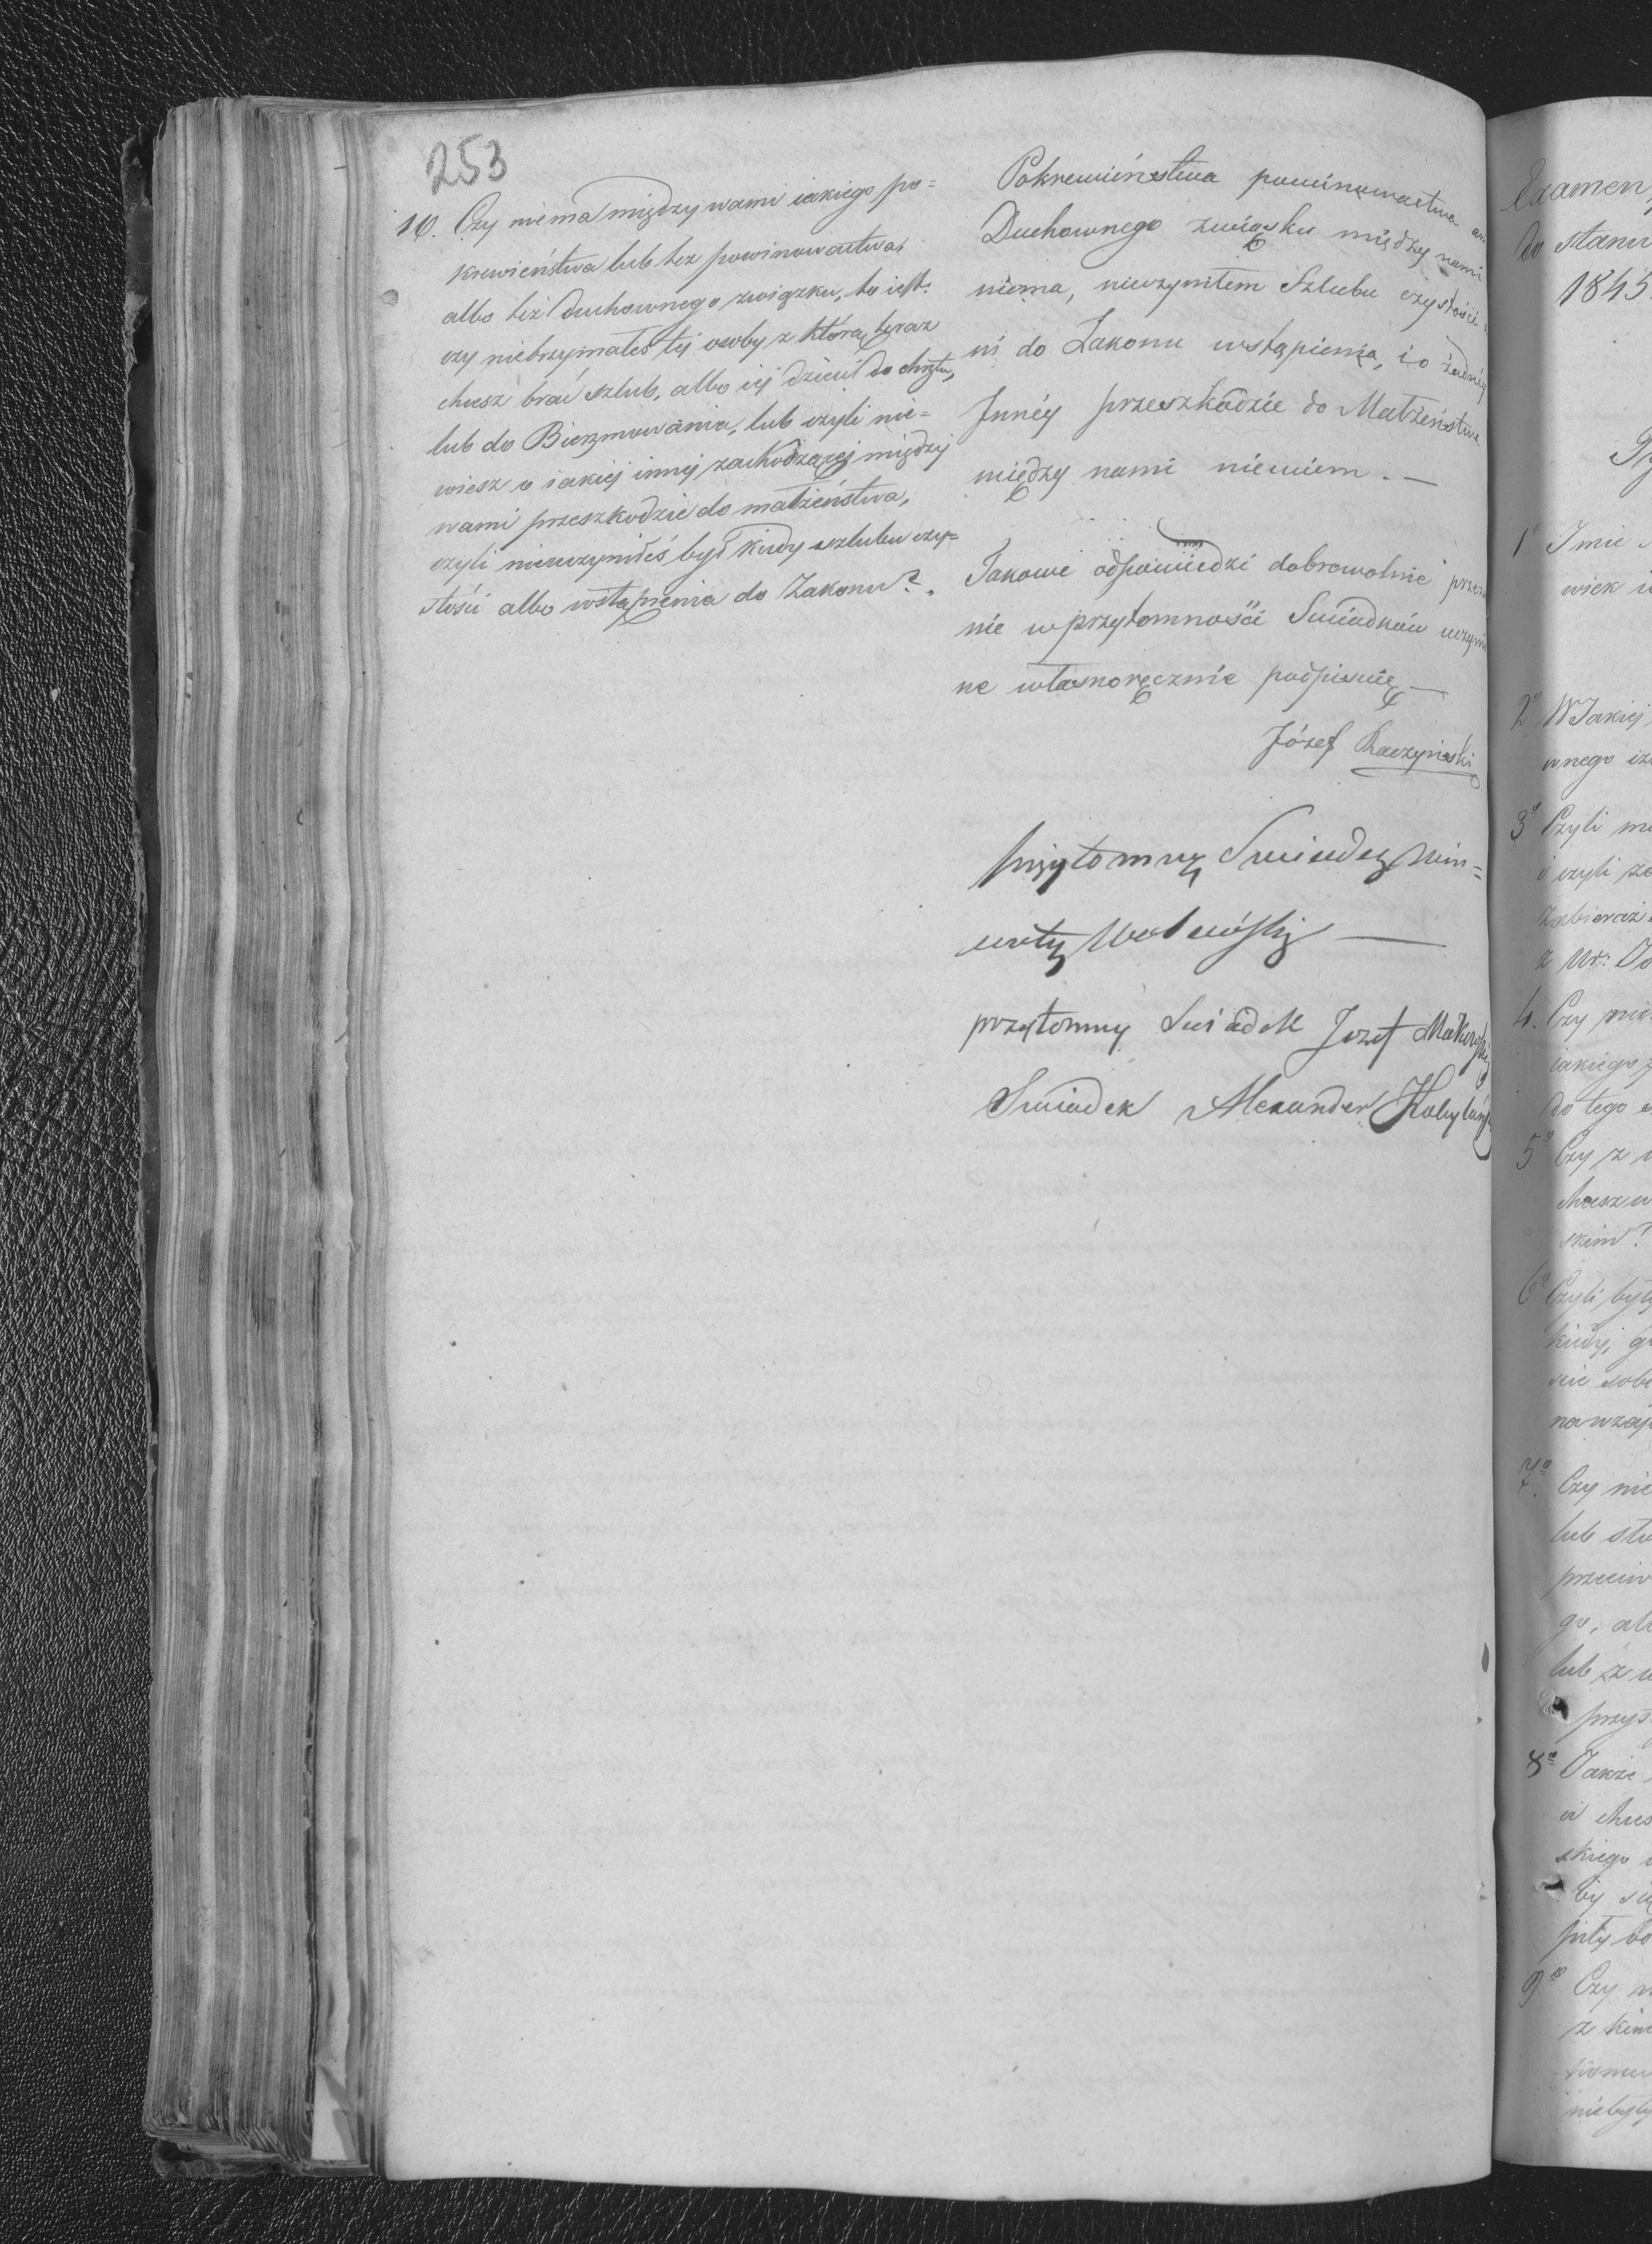 253
10. Czy niema między wami iakiego po=
krewieństwa lub też powinowactwa,
albo też duchownego związku, to iest:
czy nietrzymałeś tej osoby z którą teraz
chcesz brać szlub, albo iej dzieci do chrztu,
lub do Bierzmowania, lub czyli nie=
wiesz o iakiej innej zachodzącej między
wami przeszkodzie do małżeństwa,
czyli nieuczyniłeś był kiedy szlubu czy=
stości albo wstąpienia do Zakonu?
Pokrewieństwa powinowactwa ani
Duchownego związku między nami
niema, nieczyniłem Szlubu czystości
ni do Zakonu wstąpienia, i o żadnéy
Innéy przeszkodzie do Małżeństwa
między nami niewiem. —
Takowe odpowiedzi dobrowolnie przeze
nie w przytomności Swiadków uczynio
ne własnoręcznie podpisuię —
Józef Raczyński
przytomny Swiadek Win=
centy —
przytomny Swiadek Jozef
Swiadek Alexander Kobyliński
Examen
do stanu
1845
1° Imie
wiek
2° W Jakiej
wnego
3° Czyli
i czyli
4. Czy
iakiego
do tego
5° Czy z
chcesz w
skim?
6° Czyli
kiedy,
sobie
7° Czy nie
lub
przeciw
go,
lub z
przys
8° Także
chces
skiego
by się
9° Czy
z kim